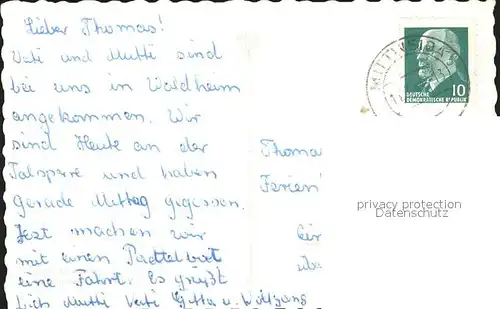 Lieber Thomas!
Vati und Mutti sind
bei uns in Waldheim
angekommen. Wir
sind Heute an der
Talsperre und haben
gerade Mittag gegessen.
Jezt machen wir
mit einen Paddelboot
eine Fahrt. Es grüßt
Dich Mutti Vati Gitta u. Wolfgang
MITTWEIDA
DEUTSCHE
DEMOKRATISCHE REPUBLIK
10
Thoma
Ferien
privacy protection
Datenschutz